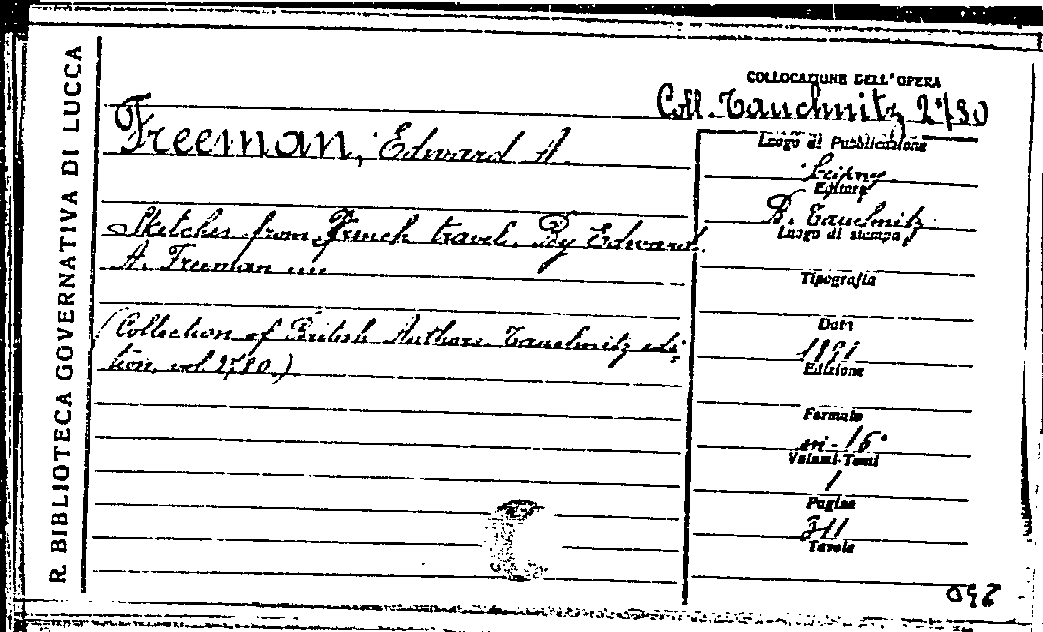 R. BIBLIOTECA GOVERNATIVA DI LUCCA
COLLOCAZIONE DELL'OPERA
Coll. Tauchnitz 2780
Freeman, Edward A.
Sketches from French travel. By Edward
A. Freeman ....
(Collection of British Authors. Tauchnitz edi-
tion, vol 2780.)
Luogo di Pubblicazione
Leipzig
Editore
B. Tauchnitz
Luogo di stampa
Tipografia
Data
1891
Edizione
Formato
in-16°
Volumi-Tomi
1
Pagine
311
Tavole